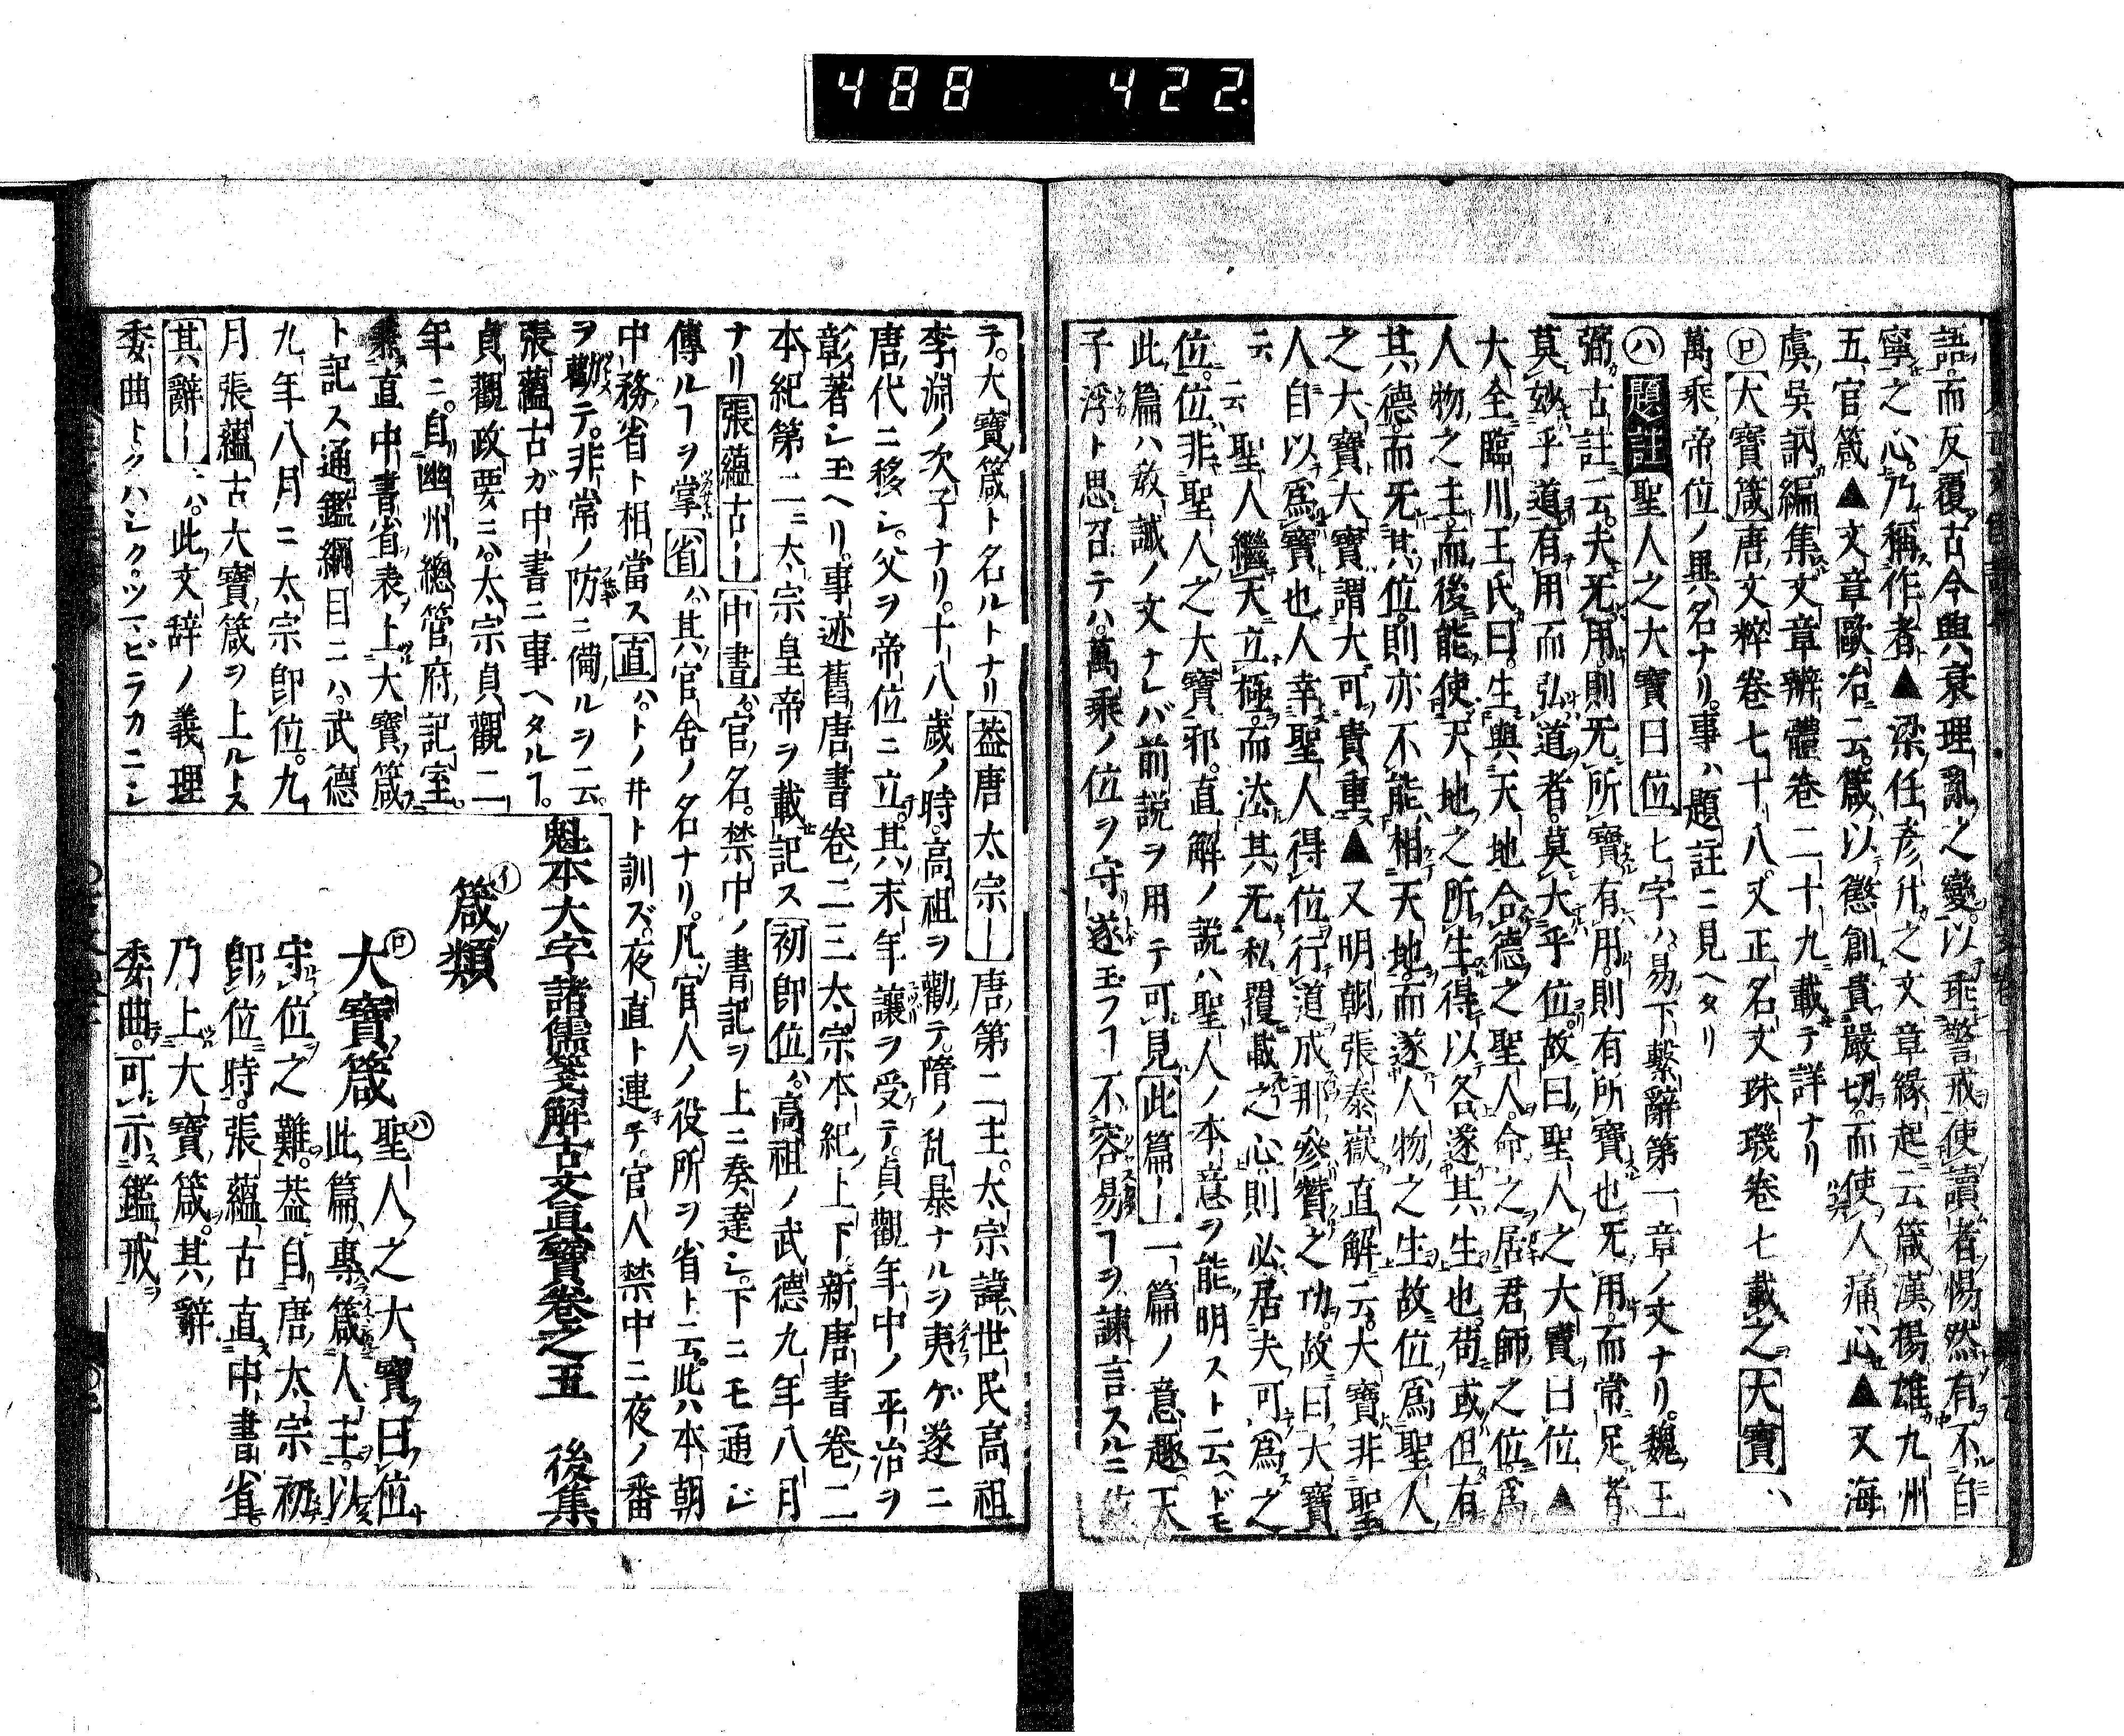 488 422.
語而反覆古今興衰理亂之變以乖警戒使讀者惕然有不自
寧之心乃稱作者▲梁任彥升之文章緣起云箴漢楊雄九州
五官箴▲文章歐冶云箴以懲創貴嚴切而使人痛心▲又海
虞吳訥編集文章辨體卷二十九載テ詳ナリ
㋺大寶箴唐文粹卷七十八又正名文珠璣卷七載之大寶ハ
萬乘帝位ノ異名ナリ事ハ題註ニ見ヘタリ
㋩題註聖人之大寶曰位七字ハ易下繫辭第一章ノ文ナリ魏王
弼古註云夫无用則无所寶有用則有所寶也无用而常足者
莫妙乎道有用而弘道者莫大乎位故曰聖人之大寶曰位▲
大全臨川王氏曰生與天地合德之聖人命之居君師之位爲
人物之主而後能使天地之所生得以各遂其生也苟或但有
其德而无其位則亦不能相天地而遂人物之生故位爲聖人
之大寶大寶謂大可貴重▲又明朝張泰嶽直解云大寶非聖
人自以爲寶也人幸聖人得位行道成那參贊之功故曰大寶
云云聖人繼天立極而法其无私覆載之心則必居夫可爲之
位位非聖人之大寶邪直解ノ説ハ聖人ノ本意ヲ能明スト云ヘドモ
此篇ハ敎誡ノ文ナレバ前説ヲ用テ可見此篇ー一篇ノ意趣天
子浮ト思召テハ萬乘ノ位ヲ守遂玉フヿ不容易ヿヲ諫言スルニ
テ大寶箴ト名ルトナリ蓋唐太宗ー唐第二主太宗諱世民高祖
李淵ノ次子ナリ十八歲ノ時高祖ヲ勸テ隋ノ乱暴ナルヲ夷ゲ遂ニ
唐代ニ移シ父ヲ帝位ニ立其末年讓ヲ受テ貞觀年中ノ平治ヲ
彰著シ玉ヘリ事迹舊唐書卷二三太宗本紀上下新唐書卷二
本紀第二ニ太宗皇帝ヲ載記ス初卽位ハ高祖ノ武德九年八月
ナリ張蘊古ー中書ハ官名禁中ノ書記ヲ上ニ奏達シ下ニモ通ジ
傳ルヿヲ掌省ハ其官舍ノ名ナリ凡官人ノ役所ヲ省ト云此ハ本朝
中務省ト相當ス直ハトノ井ト訓ズ夜直ト連テ官人禁中ニ夜ノ番
ヲ勤テ非常ノ防ニ備ルヲ云
張蘊古ガ中書ニ事ヘタルヿ
貞觀政要ニハ太宗貞觀二
年ニ自幽州總管府記室
兼直中書省表上大寶箴
ト記ス通鑑綱目ニハ武德
九年八月ニ太宗卽位九
月張蘊古大寶箴ヲ上ルトス
其辭ーハ此文辞ノ義理
委曲トクハシクツマビラカニシ
魁本大字諸儒箋解古文眞寶卷之五 後集
㋑箴類
㋺大寶箴 ㋩聖人之大寶曰位
此篇專箴人主以
守位之難蓋自唐太宗初
卽位時張蘊古直中書省
乃上大寶箴其辭
委曲可示鑑戒